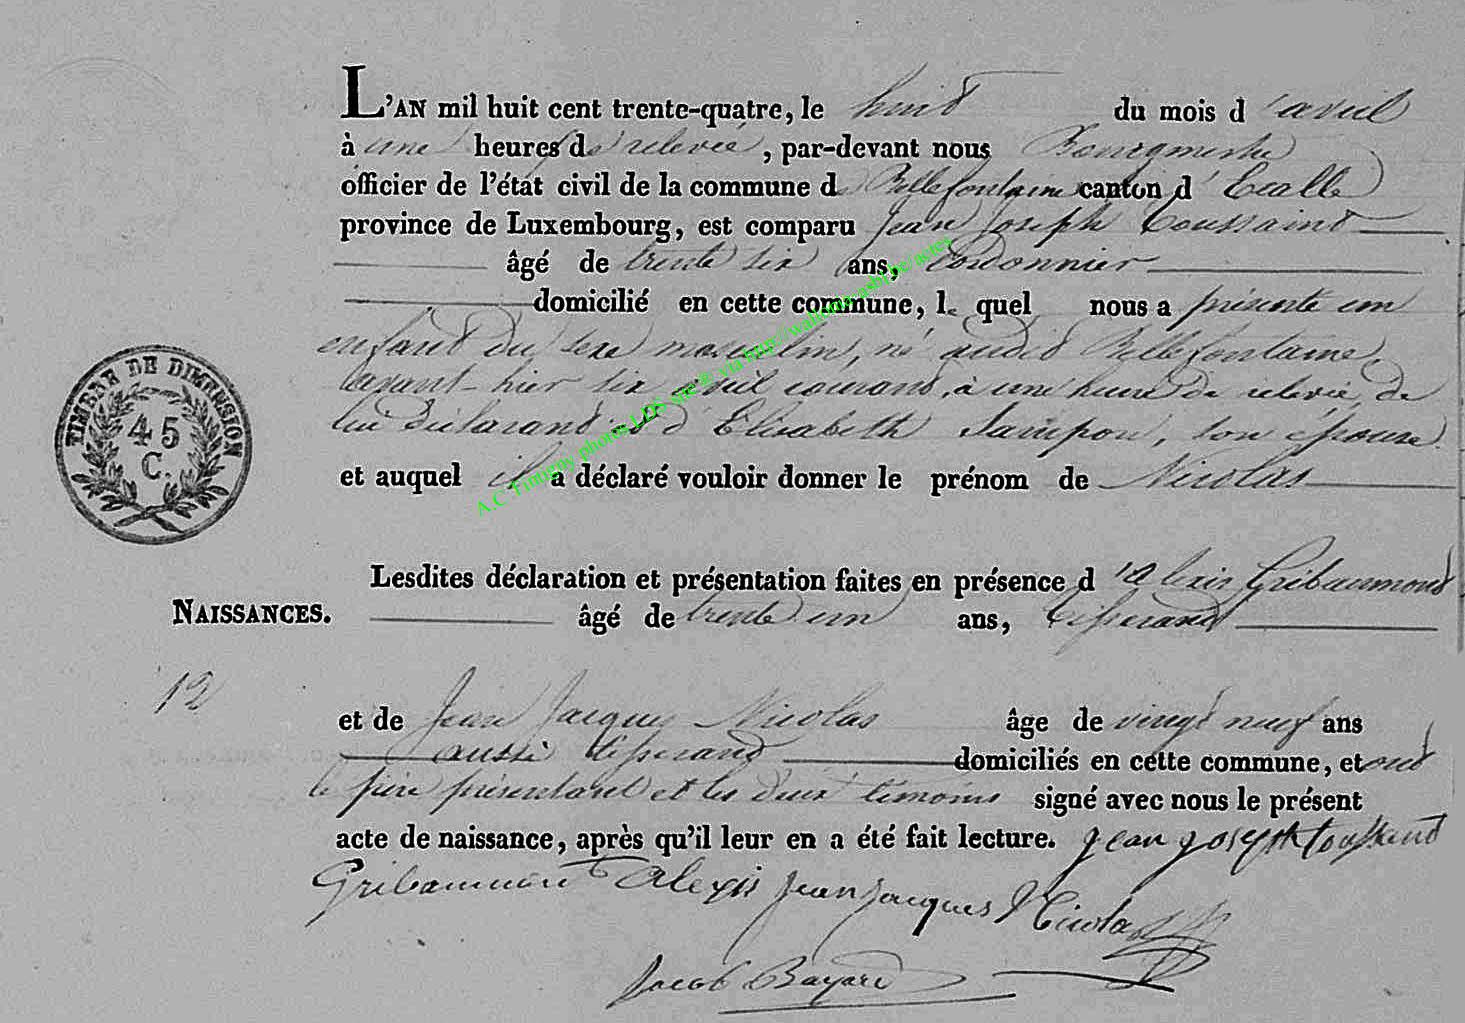 L'AN mil huit cent trente-quatre, le huit du mois d'avril
à une heures de relevée, par-devant nous Bourgmestre
officier de l'état civil de la commune de Bellefontaine canton d'Etalle
province de Luxembourg, est comparu Jean Joseph Toussaint
âgé de trente six ans, Cordonnier
domicilié en cette commune, le quel nous a présenté un
enfant du sexe masculin, né audit Bellefontaine,
avant-hier six avril courant, à une heure de relevée, de
lui déclarant et d'Elisabeth son épouse
et auquel il a déclaré vouloir donner le prénom de Nicolas
A.C Tintigny photos LDS site ® via http://wallonia-asbl.be/actes
TIMBRE DE DIMENSION
45
C.
Lesdites déclaration et présentation faites en présence d'alexis Gribaumont
NAISSANCES.
âgé de trente un ans, tisserand
12
et de Jean Jacques Nicolas âge de vingt neuf ans
aussi tisserand domiciliés en cette commune, et ont
le père présentant et les deux témoins signé avec nous le présent
acte de naissance, après qu'il leur en a été fait lecture. jean joseph toussaint
Gribaumont alexis jean jacques Nicolas
Jacob Bayard